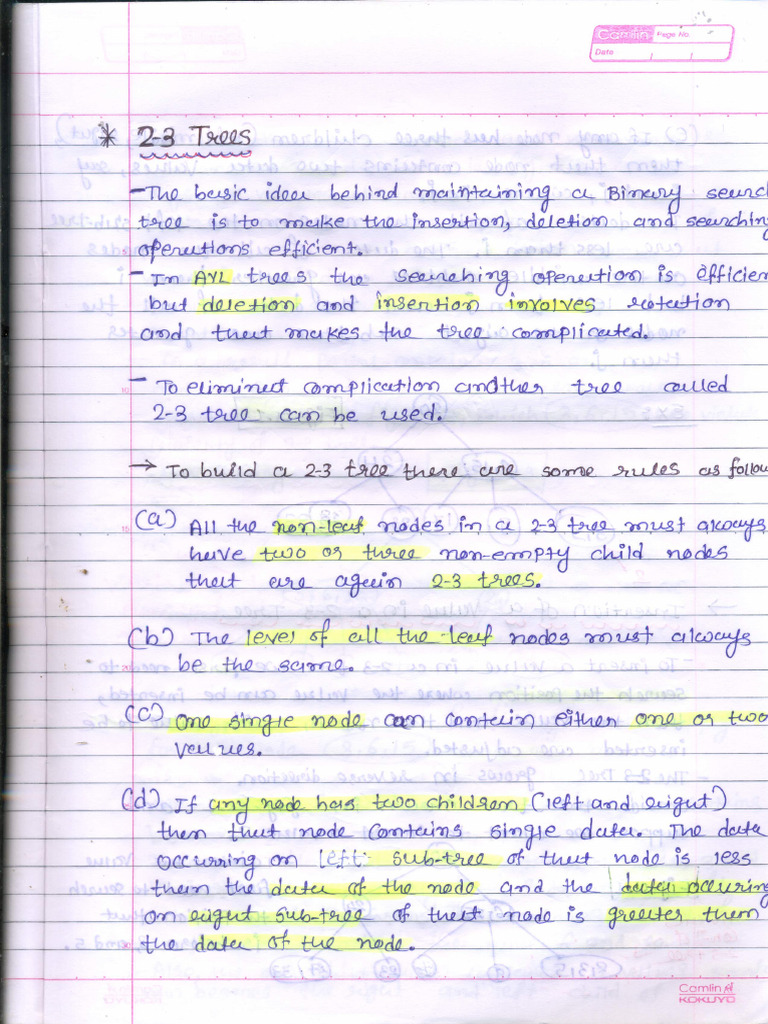 Camlin Page No.
Date / /
* 2-3 Trees
- The basic idea behind maintaining a Binary search
tree is to make the insertion, deletion and searching
operations efficient.
- In AVL trees the searching operation is efficien
but deletion and insertion involves rotation
and that makes the tree complicated.
- To eliminet complication another tree called
2-3 tree can be used.
→ To build a 2-3 tree there are some rules as follow
(a) All the non-leaf nodes in a 2-3 tree must always
have two or three non-empty child nodes
that are again 2-3 trees.
(b) The level of all the leaf nodes must always
be the same.
(c) One single node can contain either one or two
values.
(d) If any node has two children (left and right)
then that node contains single data. The data
occurring on left sub-tree of that node is less
then the data of the node and the data occuring
on right sub-tree of that node is greater then
the data of the node.
Camlin
KOKUYO